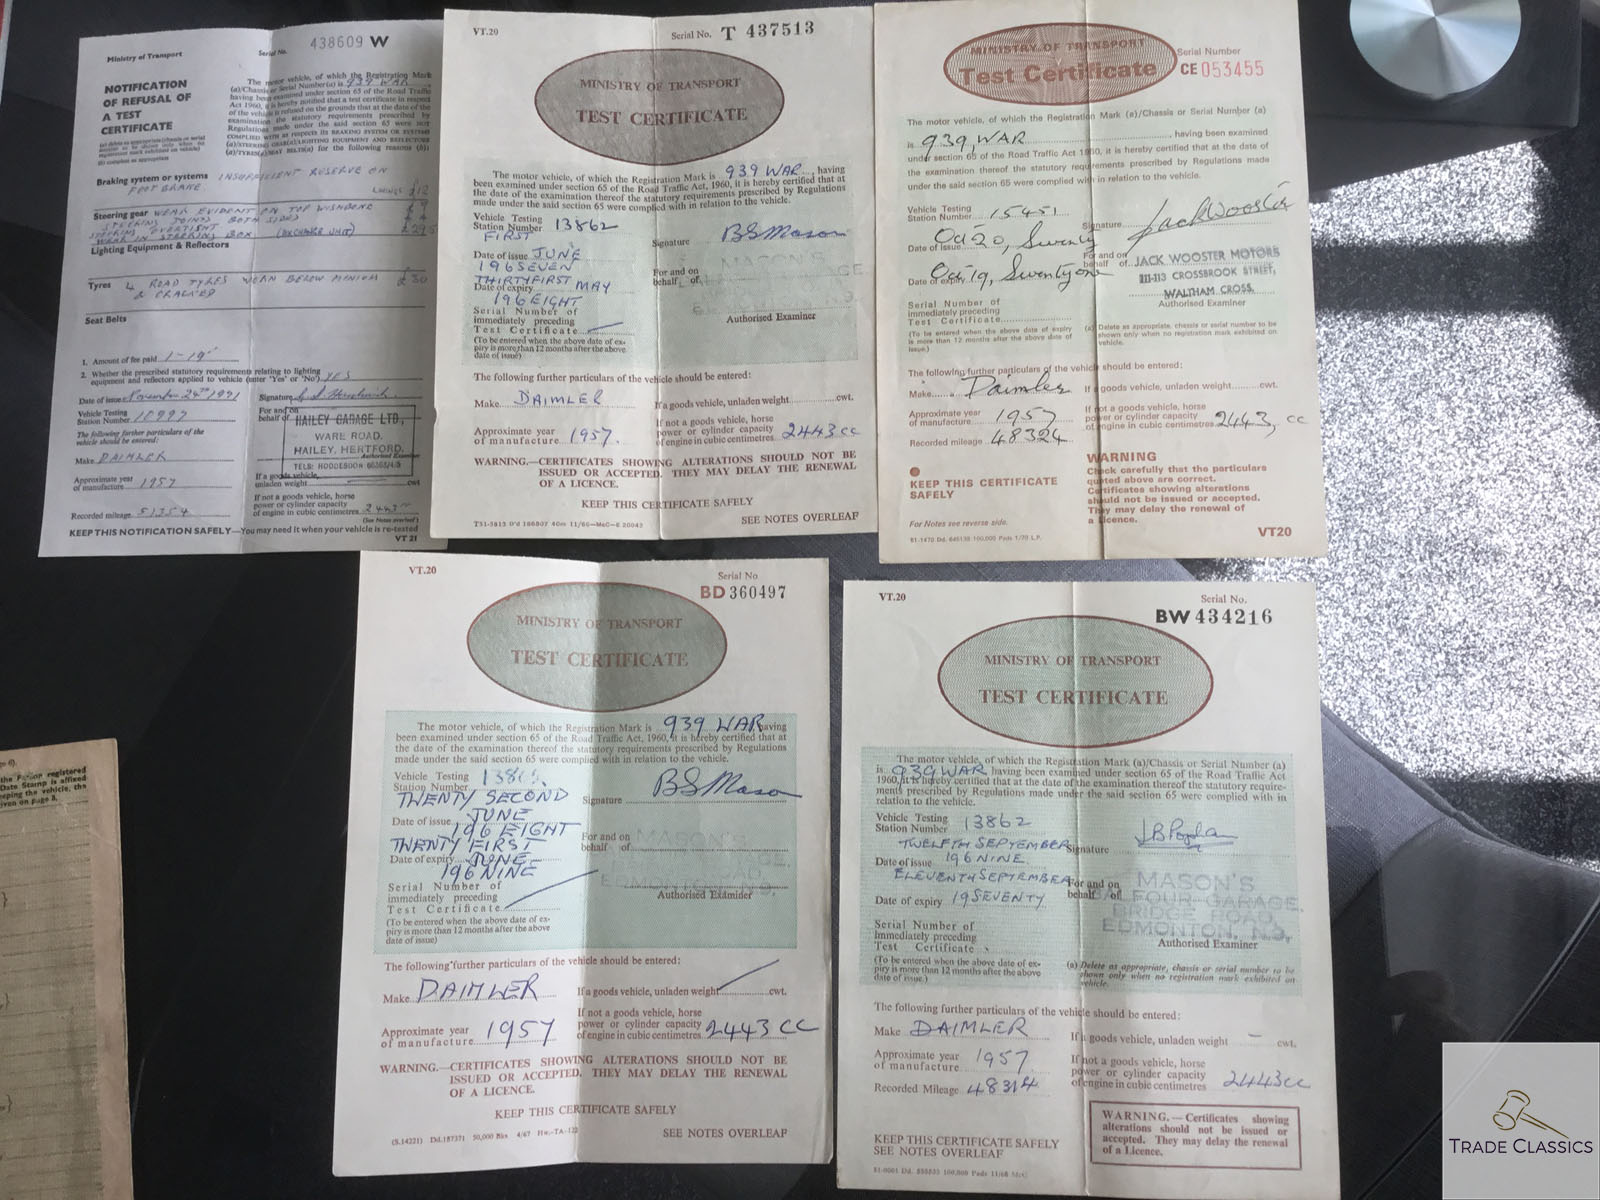 Ministry of Transport
Serial No. 438609 W
NOTIFICATION
OF REFUSAL OF
A TEST
CERTIFICATE
The motor vehicle, of which the Registration Mark
(a)/Chassis or Serial Number (a) is 939 WAR
having been examined under section 65 of the Road Traffic
Act 1960, it is hereby notified that a test certificate in respect
of the vehicle is refused on the grounds that at the date of the
examination the statutory requirements prescribed by
Regulations made under the said section 65 were not
COMPLIED WITH as respects its BRAKING SYSTEM OR SYSTEMS
(a)/STEERING GEAR(a)/LIGHTING EQUIPMENT AND REFLECTORS
(a)/TYRES(a)/SEAT BELTS(a) for the following reasons (b):
Braking system or systems INSUFFICIENT RESERVE ON
FOOT BRAKE. LININGS £12
Steering gear WEAR EVIDENT ON TOP WISHBONE
STEERING JOINTS BOTH SIDES
WEAR IN STEERING BOX (EXCHANGE UNIT)
Lighting Equipment & Reflectors
Tyres 4 ROAD TYRES WEAR BELOW MINIUM £30
& CRACKED
Seat Belts
1. Amount of fee paid
2. Whether the prescribed statutory requirements relating to lighting
equipment and reflectors applied to vehicle (enter 'Yes' or 'No') YES
Date of issue November 24TH 1971
Signature
Vehicle Testing
Station Number
For and on
behalf of HAILEY GARAGE LTD.,
WARE ROAD.
HAILEY, HERTFORD.
Authorised Examiner
The following further particulars of the
vehicle should be entered:
Make DAIMLER
If a goods vehicle,
unladen weight cwt
Approximate year
of manufacture 1957
If not a goods vehicle, horse
power or cylinder capacity
of engine in cubic centimetres 2443
Recorded mileage 51354
(See Notes overleaf)
KEEP THIS NOTIFICATION SAFELY—You may need it when your vehicle is re-tested
VT 21
VT.20
Serial No. T 437513
MINISTRY OF TRANSPORT
TEST CERTIFICATE
The motor vehicle, of which the Registration Mark is 939 WAR, having
been examined under section 65 of the Road Traffic Act, 1960, it is hereby certified that at
the date of the examination thereof the statutory requirements prescribed by Regulations
made under the said section 65 were complied with in relation to the vehicle.
Vehicle Testing
Station Number 13862
FIRST
Date of issue JUNE
196SEVEN
THIRTYFIRST MAY
Date of expiry
196EIGHT
Signature BSMason
For and on
behalf of MASON'S
Authorised Examiner
Serial Number of
immediately preceding
Test Certificate
(To be entered when the above date of ex-
piry is more than 12 months after the above
date of issue)
The following further particulars of the vehicle should be entered:
Make DAIMLER If a goods vehicle, unladen weight cwt.
Approximate year
of manufacture 1957.
If not a goods vehicle, horse
power or cylinder capacity
of engine in cubic centimetres 2443cc
WARNING.—CERTIFICATES SHOWING ALTERATIONS SHOULD NOT BE
ISSUED OR ACCEPTED. THEY MAY DELAY THE RENEWAL
OF A LICENCE.
KEEP THIS CERTIFICATE SAFELY
SEE NOTES OVERLEAF
MINISTRY OF TRANSPORT
Test Certificate
Serial Number
CE 053455
The motor vehicle, of which the Registration Mark (a)/Chassis or Serial Number (a)
is 939, WAR, having been examined
under section 65 of the Road Traffic Act 1960, it is hereby certified that at the date of
the examination thereof the statutory requirements prescribed by Regulations made
under the said section 65 were complied with in relation to the vehicle.
Vehicle Testing
Station Number 15451
Date of issue Oct 20, Seventy
Date of expiry Oct 19, Seventyone
Signature Jack Wooster
For and on
behalf of JACK WOOSTER MOTORS
111-113 CROSSBROOK STREET,
WALTHAM CROSS.
Authorised Examiner
Serial Number of
immediately preceding
Test Certificate
(To be entered when the above date of expiry
is more than 12 months after the above date of
issue.)
(a) Delete as appropriate, chassis or serial number to be
shown only when no registration mark exhibited on
vehicle.
The following further particulars of the vehicle should be entered:
Make Daimler If a goods vehicle, unladen weight cwt.
Approximate year
of manufacture 1957
If not a goods vehicle, horse
power or cylinder capacity
of engine in cubic centimetres 2443, cc
Recorded mileage 48324
KEEP THIS CERTIFICATE
SAFELY
WARNING
Check carefully that the particulars
quoted above are correct.
Certificates showing alterations
should not be issued or accepted.
They may delay the renewal of
a Licence.
For Notes see reverse side.
VT20
VT.20
Serial No
BD 360497
MINISTRY OF TRANSPORT
TEST CERTIFICATE
The motor vehicle, of which the Registration Mark is 939 WAR having
been examined under section 65 of the Road Traffic Act, 1960, it is hereby certified that at
the date of the examination thereof the statutory requirements prescribed by Regulations
made under the said section 65 were complied with in relation to the vehicle.
Vehicle Testing
Station Number
TWENTY SECOND
JUNE
Date of issue 196 EIGHT
TWENTY FIRST
Date of expiry JUNE
196 NINE
Signature BSMason
For and on
behalf of MASON'S
Authorised Examiner
Serial Number of
immediately preceding
Test Certificate
(To be entered when the above date of ex-
piry is more than 12 months after the above
date of issue)
The following further particulars of the vehicle should be entered:
Make DAIMLER If a goods vehicle, unladen weight cwt.
Approximate year
of manufacture 1957
If not a goods vehicle, horse
power or cylinder capacity
of engine in cubic centimetres 2443 CC
WARNING.—CERTIFICATES SHOWING ALTERATIONS SHOULD NOT BE
ISSUED OR ACCEPTED. THEY MAY DELAY THE RENEWAL
OF A LICENCE.
KEEP THIS CERTIFICATE SAFELY
SEE NOTES OVERLEAF
VT.20
Serial No.
BW 434216
MINISTRY OF TRANSPORT
TEST CERTIFICATE
The motor vehicle, of which the Registration Mark (a)/Chassis or Serial Number (a)
is 939 WAR having been examined under section 65 of the Road Traffic Act
1960, it is hereby certified that at the date of the examination thereof the statutory require-
ments prescribed by Regulations made under the said section 65 were complied with in
relation to the vehicle.
Vehicle Testing
Station Number 13862
TWELFTH SEPTEMBER
Date of issue 196 NINE
ELEVENTH SEPTEMBER
Date of expiry 19 SEVENTY
Signature
For and on
behalf of MASON'S
FOUR GARAGE,
BRIDGE ROAD,
EDMONTON, N.9.
Authorised Examiner
Serial Number of
Immediately preceding
Test Certificate
(To be entered when the above date of ex-
piry is more than 12 months after the above
date of issue.)
(a) Delete as appropriate, chassis or serial number to be
shown only when no registration mark exhibited on
vehicle.
The following further particulars of the vehicle should be entered:
Make DAIMLER If a goods vehicle, unladen weight – cwt.
Approximate year
of manufacture 1957
If not a goods vehicle, horse
power or cylinder capacity
of engine in cubic centimetres 2443cc
Recorded Mileage 48314
KEEP THIS CERTIFICATE SAFELY
SEE NOTES OVERLEAF
WARNING.—Certificates showing
alterations should not be issued or
accepted. They may delay the renewal
of a Licence.
TRADE CLASSICS